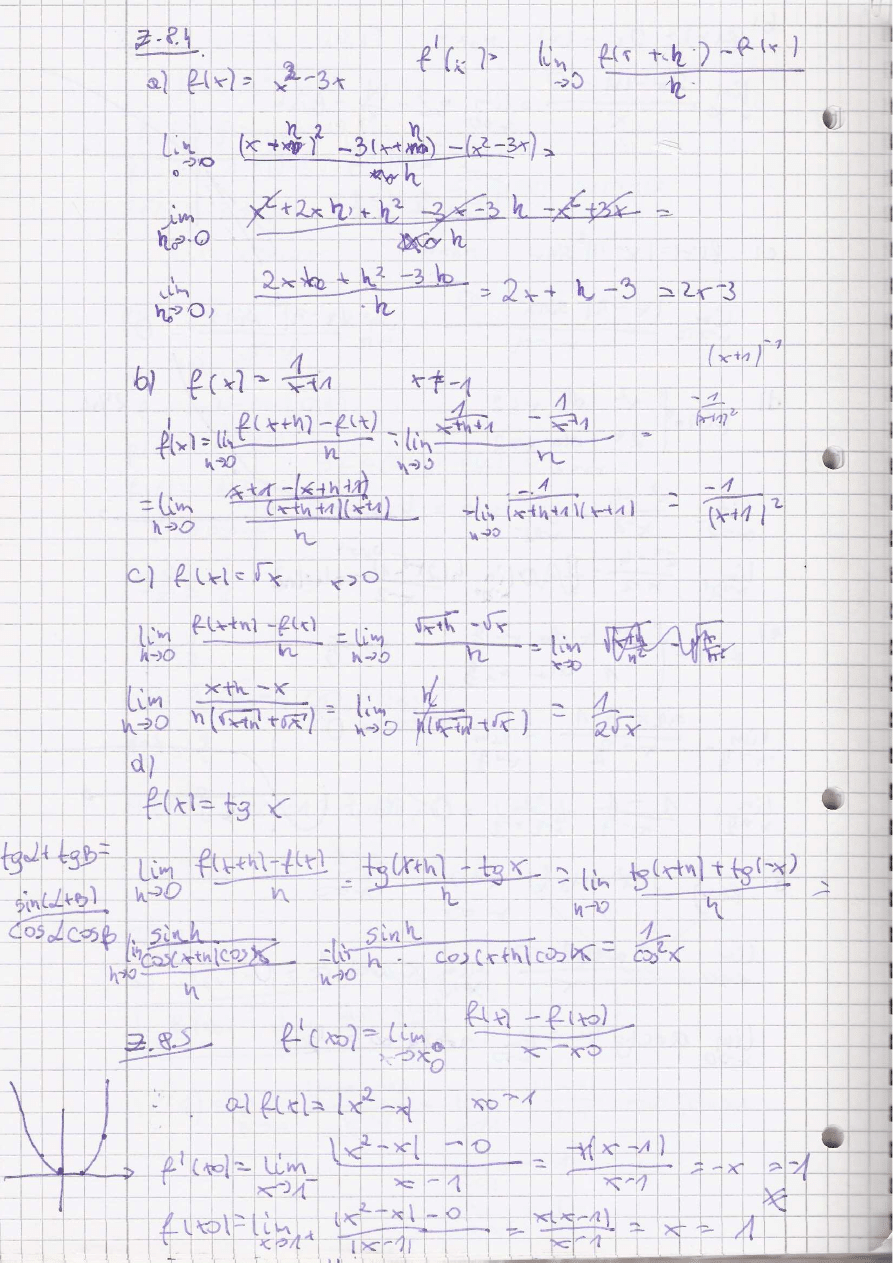 Z-8.4
a) f(x) = x² - 3x    f'(x) = lim →0 (f(x + h) - f(x)) / h
lim →0 ((x + h)² - 3(x + h) - (x² - 3x)) / h =
lim h→0 (x² + 2xh + h² - 3x - 3h - x² + 3x) / h =
lim h→0 (2xh + h² - 3h) / h = 2x + h - 3 = 2x - 3
(x+1)⁻¹
b) f(x) = 1/(x+1)    x ≠ -1
-1/(x+1)²
f'(x) = lim h→0 (f(x+h) - f(x)) / h = lim h→0 (1/(x+h+1) - 1/(x+1)) / h =
= lim h→0 ((x+1 - (x+h+1)) / ((x+h+1)(x+1))) / h    lim h→0 -1/((x+h+1)(x+1)) = -1/(x+1)²
c) f(x) = √x    x>0
lim h→0 (f(x+h) - f(x)) / h = lim h→0 (√(x+h) - √x) / h = lim x→0
lim h→0 (x+h - x) / (h(√(x+h) + √x)) = lim h→0 h / (h(√(x+h) + √x)) = 1/(2√x)
d)
f(x) = tg x
tgα + tgβ = sin(α+β) / (cosα cosβ)
lim h→0 (f(x+h) - f(x)) / h = (tg(x+h) - tg x) / h = lim h→0 (tg(x+h) + tg(-x)) / h =
lim h→0 (sin h / (cos(x+h) cos x)) / h = lim h→0 sin h / (h · cos(x+h) cos x) = 1/cos²x
Z.8.5    f'(x0) = lim x→x0 (f(x) - f(x0)) / (x - x0)
a) f(x) = |x² - x|    x0 = 1
f'(x0) = lim x→1⁻ (|x² - x| - 0) / (x - 1) = -x(x-1) / (x-1) = -x = -1
f(x0) = lim x→1⁺ (|x² - x| - 0) / (x-1) = x(x-1) / (x-1) = x = 1